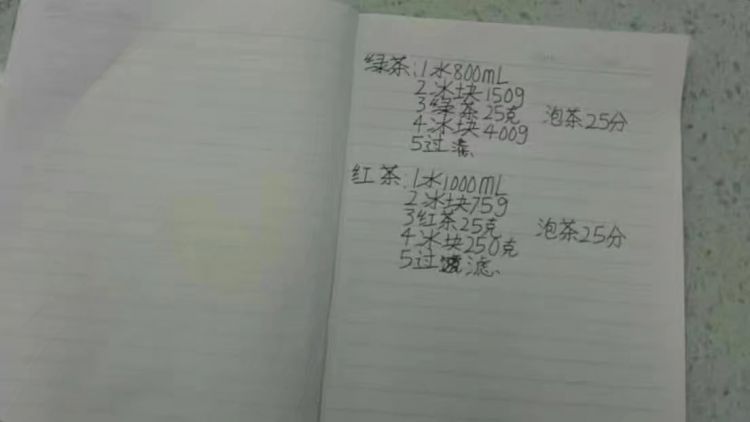 绿茶:1水800mL
2.冰块150g
3绿茶25克 泡茶25分
4.冰块400g
5过滤
红茶:1水1000mL
2冰块75g
3红茶25克 泡茶25分
4.冰块250克
5过滤